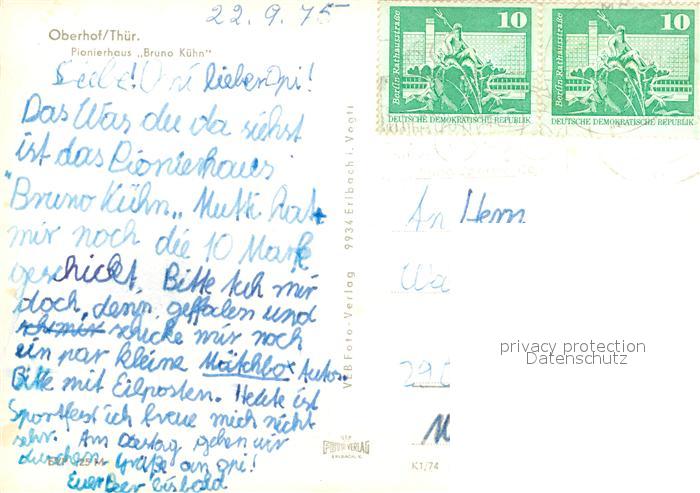 22.9.75
Oberhof/Thür.
Pionierhaus „Bruno Kühn"
Liebe! Omi lieber Opi!
Das Was du da siehst
ist das Pionierhaus
"Bruno Kühn„ Mutti hat
mir noch die 10 Mark
geschickt. Bitte tuh mir
doch, denn geffalen und
schicke mir noch
ein par kleine Mätchbox Autos.
Bitte mit Eilposten. Heute ist
Sportfest ich freue mich nicht
sehr. Am gehen wir
Grüße an Opi!
Euer bis bald
VEB Foto-Verlag 9934 Erlbach i. Vogtl
VEB
FOTO-VERLAG
ERLBACH
K1/74
Berlin-Rathausstraße
10
DEUTSCHE DEMOKRATISCHE REPUBLIK
Berlin-Rathausstraße
10
DEUTSCHE DEMOKRATISCHE REPUBLIK
An Herrn
Wa
29
M
privacy protection
Datenschutz